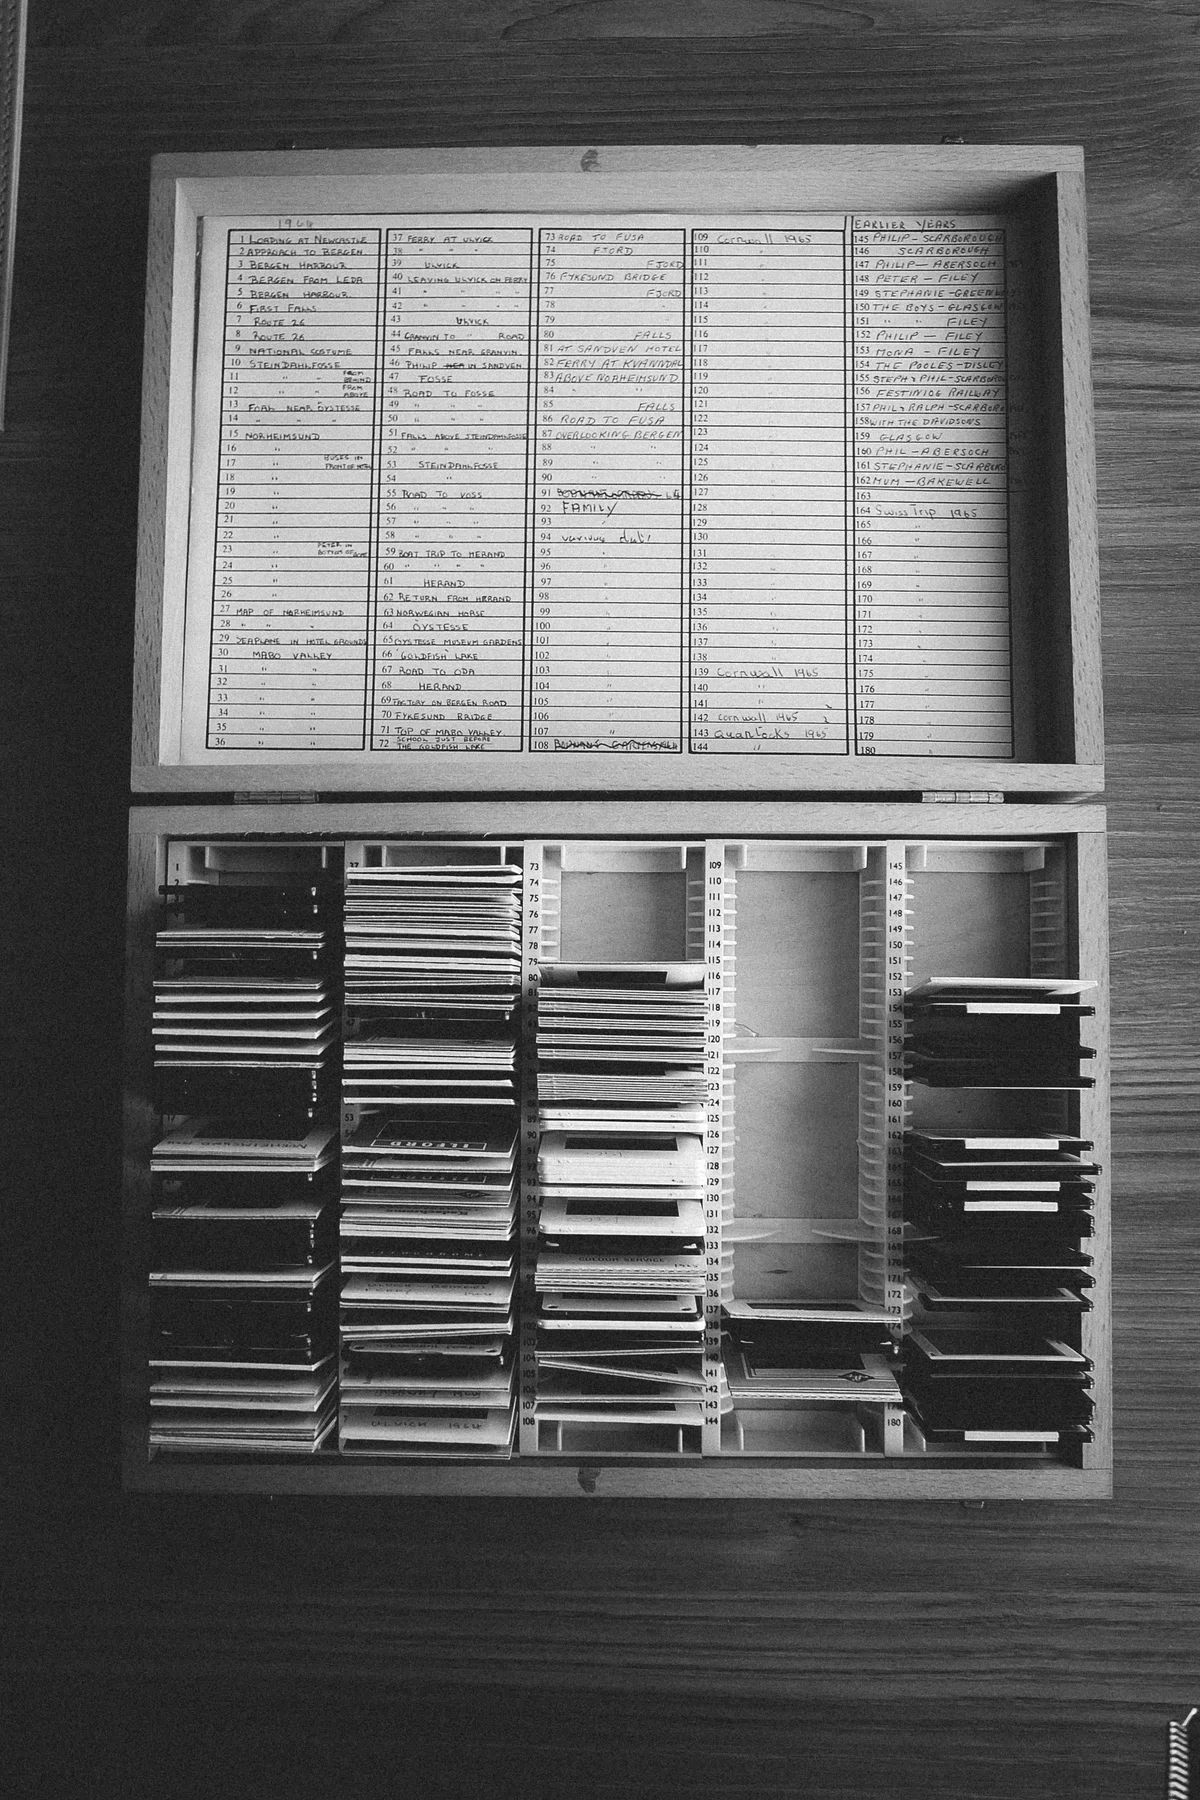 1964
1 LOADING AT NEWCASTLE
2 APPROACH TO BERGEN
3 BERGEN HARBOUR
4 BERGEN FROM LEDA
5 BERGEN HARBOUR
6 FIRST FALLS
7 ROUTE 26
8 ROUTE 26
9 NATIONAL COSTUME
10 STEINDAHLFOSSE
11 " " FROM BEHIND
12 " " FROM ABOVE
13 FOAL NEAR OYSTESSE
14 " " "
15 NORHEIMSUND
16 "
17 " BUSES IN FRONT OF HOTEL
18 "
19 "
20 "
21 "
22 "
23 " PETER IN BOTTOM OF
24 "
25 "
26 "
27 MAP OF NORHEIMSUND
28 " " "
29 SEAPLANE IN HOTEL GROUNDS
30 MABO VALLEY
31 " "
32 " "
33 " "
34 " "
35 " "
36 " "
37 FERRY AT ULVICK
38 " " "
39 ULVICK
40 LEAVING ULVICK ON FERRY
41 " " " "
42 " " " "
43 ULVICK
44 GRANVIN TO " ROAD
45 FALLS NEAR GRANVIN.
46 PHILIP IN SANDVEN
47 FOSSE
48 ROAD TO FOSSE
49 " " "
50 " " "
51 FALLS ABOVE STEINDAHLFOSSE
52 " " "
53 STEINDAHLFOSSE
54 "
55 ROAD TO VOSS
56 " " "
57 " " "
58 " " "
59 BOAT TRIP TO HERAND
60 " " " "
61 HERAND
62 RETURN FROM HERAND
63 NORWEGIAN HORSE
64 OYSTESSE
65 OYSTESSE MUSEUM GARDENS
66 'GOLDFISH' LAKE
67 ROAD TO ODA
68 HERAND
69 FACTORY ON BERGEN ROAD
70 FYKESUND BRIDGE
71 TOP OF MABO VALLEY.
72 SCHOOL JUST BEFORE THE GOLDFISH LAKE
73 ROAD TO FUSA
74 FJORD
75 FJORD
76 FYKESUND BRIDGE
77 FJORD
78 "
79 "
80 FALLS
81 AT SANDVEN HOTEL
82 FERRY AT KVANNDAL
83 ABOVE NORHEIMSUND
84 " "
85 FALLS
86 ROAD TO FUSA
87 OVERLOOKING BERGEN
88 " "
89 " "
90 " "
91 64
92 FAMILY
93 "
94 various
95 "
96 "
97 "
98 "
99 "
100 "
101 "
102 "
103 "
104 "
105 "
106 "
107 "
108
109 Cornwall 1965
110 "
111 "
112 "
113 "
114 "
115 "
116 "
117 "
118 "
119 "
120 "
121 "
122 "
123 "
124 "
125 "
126 "
127 "
128 "
129 "
130 "
131 "
132 "
133 "
134 "
135 "
136 "
137 "
138 "
139 Cornwall 1965
140 "
141 "
142 Cornwall 1965
143 Quantocks 1965
144 "
EARLIER YEARS
145 PHILIP - SCARBOROUGH
146 SCARBOROUGH
147 PHILIP - ABERSOCH
148 PETER - FILEY
149 STEPHANIE - GREEN
150 THE BOYS - GLASGOW
151 " " FILEY
152 PHILIP - FILEY
153 MONA - FILEY
154 THE POOLES - DISLEY
155 STEPH & PHIL - SCARBORO
156 FESTINIOG RAILWAY
157 PHIL & RALPH - SCARBORO
158 WITH THE DAVIDSONS
159 GLASGOW
160 PHIL - ABERSOCH
161 STEPHANIE - SCARBORO
162 MUM - BAKEWELL
163
164 Swiss Trip 1965
165 "
166 "
167 "
168 "
169 "
170 "
171 "
172 "
173 "
174 "
175 "
176 "
177 "
178 "
179 "
180 "
1
2
37
53
ILFORD
73
74
75
76
77
78
79
80
COLOUR SERVICE
104
105
107
108
109
110
111
112
113
114
115
116
117
118
119
120
121
122
123
124
125
126
127
128
129
130
131
132
133
134
135
136
137
139
140
141
142
144
145
146
147
148
149
150
151
152
153
154
155
156
157
158
159
160
162
168
171
172
180
ULVICK 1964